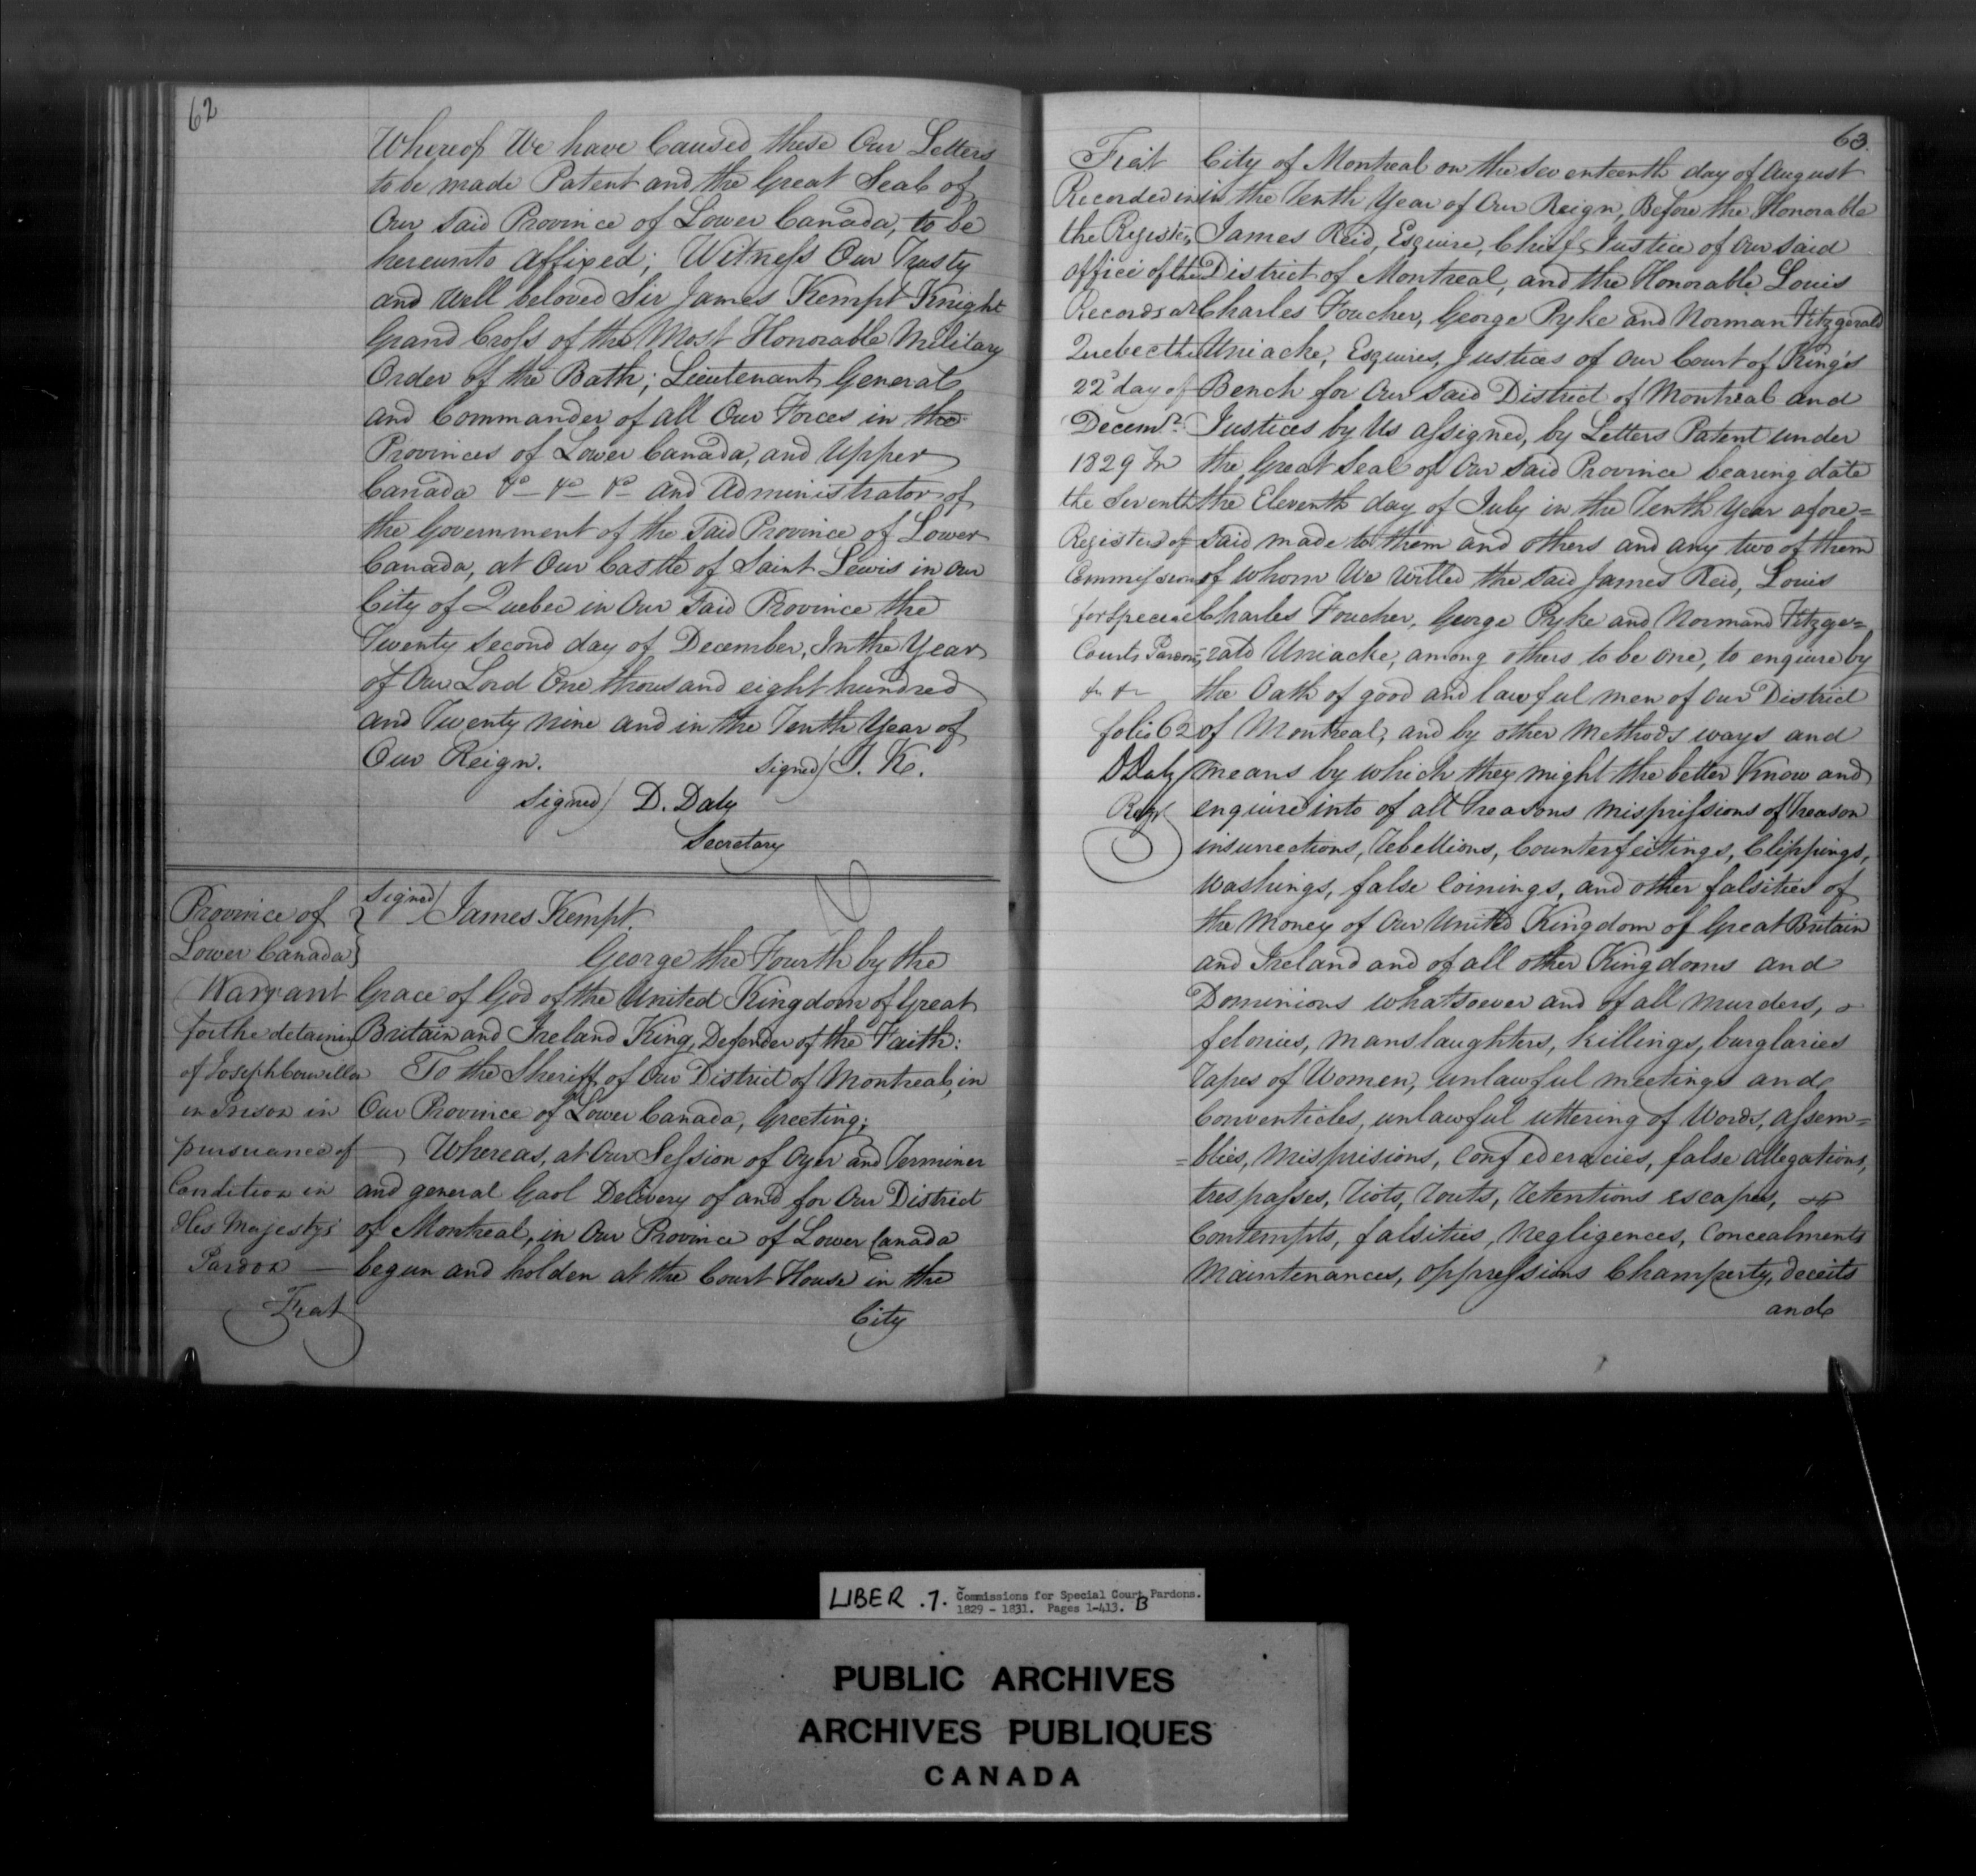 62
Whereof We have Caused these Our Letters
to be made Patent and the Great Seal of
Our Said Province of Lower Canada, to be
hereunto affixed; Witness Our Trusty
and Well beloved Sir James Kempt Knight
Grand Cross of the Most Honorable Military
Order of the Bath; Lieutenant General
and Commander of all Our Forces in the
Provinces of Lower Canada, and Upper
Canada &c — &c — &c and Administrator of
the Government of the Said Province of Lower
Canada, at Our Castle of Saint Lewis in our
City of Quebec in Our Said Province the
Twenty Second day of December, In the Year
of Our Lord One thousand eight hundred
and Twenty nine and in the Tenth Year of
Our Reign. Signed) J. K.
Signed) D. Daly
Secretary
Province of
Lower Canada
Warrant
for the detaining
of Joseph
in Prison in
pursuance of
Condition in
His Majesty's
Pardon —
Fiat
Signed) James Kempt.
George the Fourth by the
Grace of God of the United Kingdom of Great
Britain and Ireland King, Defender of the Faith:
To the Sheriff of Our District of Montreal, in
Our Province of Lower Canada, Greeting;
Whereas, at Our Session of Oyer and Terminer
and general Gaol Delivery of and for Our District
of Montreal, in Our Province of Lower Canada
begun and holden at the Court House in the
City
63.
Fiat
Recorded in
the Register
office of the
Records at
Quebec the
22d day of
Decemr.
1829 In
the Seventh
Register of
Commissions
for Special
Courts Pardons,
&c &c
folio 62
D Daly
Regr
City of Montreal on the Seventeenth day of August
in the Tenth Year of Our Reign, Before the Honorable
James Reid, Esquire, Chief Justice of Our Said
District of Montreal, and the Honorable Louis
Charles Foucher, George Pyke and Norman Fitzgerald
Uniacke, Esquires, Justices of our Court of King's
Bench for Our Said District of Montreal and
Justices by Us assigned, by Letters Patent under
the Great Seal of Our Said Province bearing date
the Eleventh day of July in the Tenth Year afore=
said made to them and others and any two of them
of whom We Willed the Said James Reid, Louis
Charles Foucher, George Pyke and Normand Fitzge=
=rald Uniacke, among others to be one, to enquire by
the Oath of good and lawful men of our District
of Montreal, and by other Methods ways and
means by which they might the better Know and
enquire into of all Treasons misprissions of Treason
insurrections, Rebellions, Counterfeitings, Clippings,
Washings, false Coinings, and other falsities of
the Money of Our United Kingdom of Great Britain
and Ireland and of all other Kingdoms and
Dominions whatsoever and of all murders,
felonies, Manslaughters, Killings, burglaries
Rapes of Women, unlawful meetings and
Conventicles, unlawful uttering of Words, assem=
=blies, Misprisions, Confederacies, false allegations,
trespasses, Riots, Routs, Retentions escapes,
Contempts, falsities, Negligences, Concealments
Maintenances, oppressions Champerty, deceits
and
LIBER .7. Commissions for Special Court Pardons.
1829 - 1831. Pages 1-413. B
PUBLIC ARCHIVES
ARCHIVES PUBLIQUES
CANADA